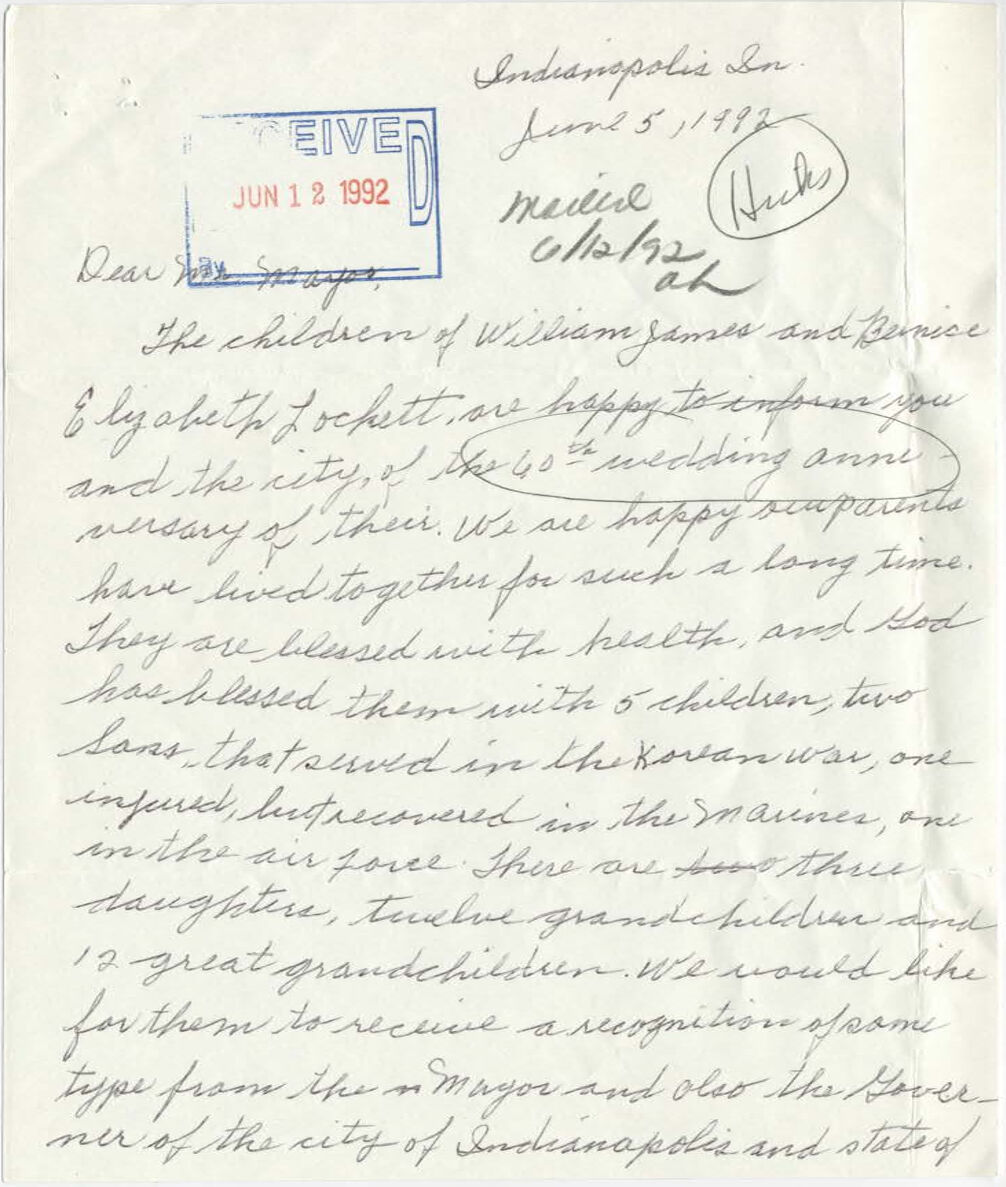 Indianapolis In.
June 5, 1992
CEIVED
JUN 12 1992
By
Mailed
6/12/92
ah
Dear Mr. Mayor,
The children of William James and Bernice
Elizabeth Lockett, are happy to inform you
and the city, of the 60th wedding anni-
versary of their. We are happy our parents
have lived together for such a long time.
They are blessed with health, and God
has blessed them with 5 children, two
sons, that served in the Korean war, one
injured, but recovered in the Marines, one
in the air force. There are two three
daughters, twelve grandchildren and
12 great grandchildren. We would like
for them to receive a recognition of some
type from the m Mayor and also the Gover-
ner of the city of Indianapolis and state of